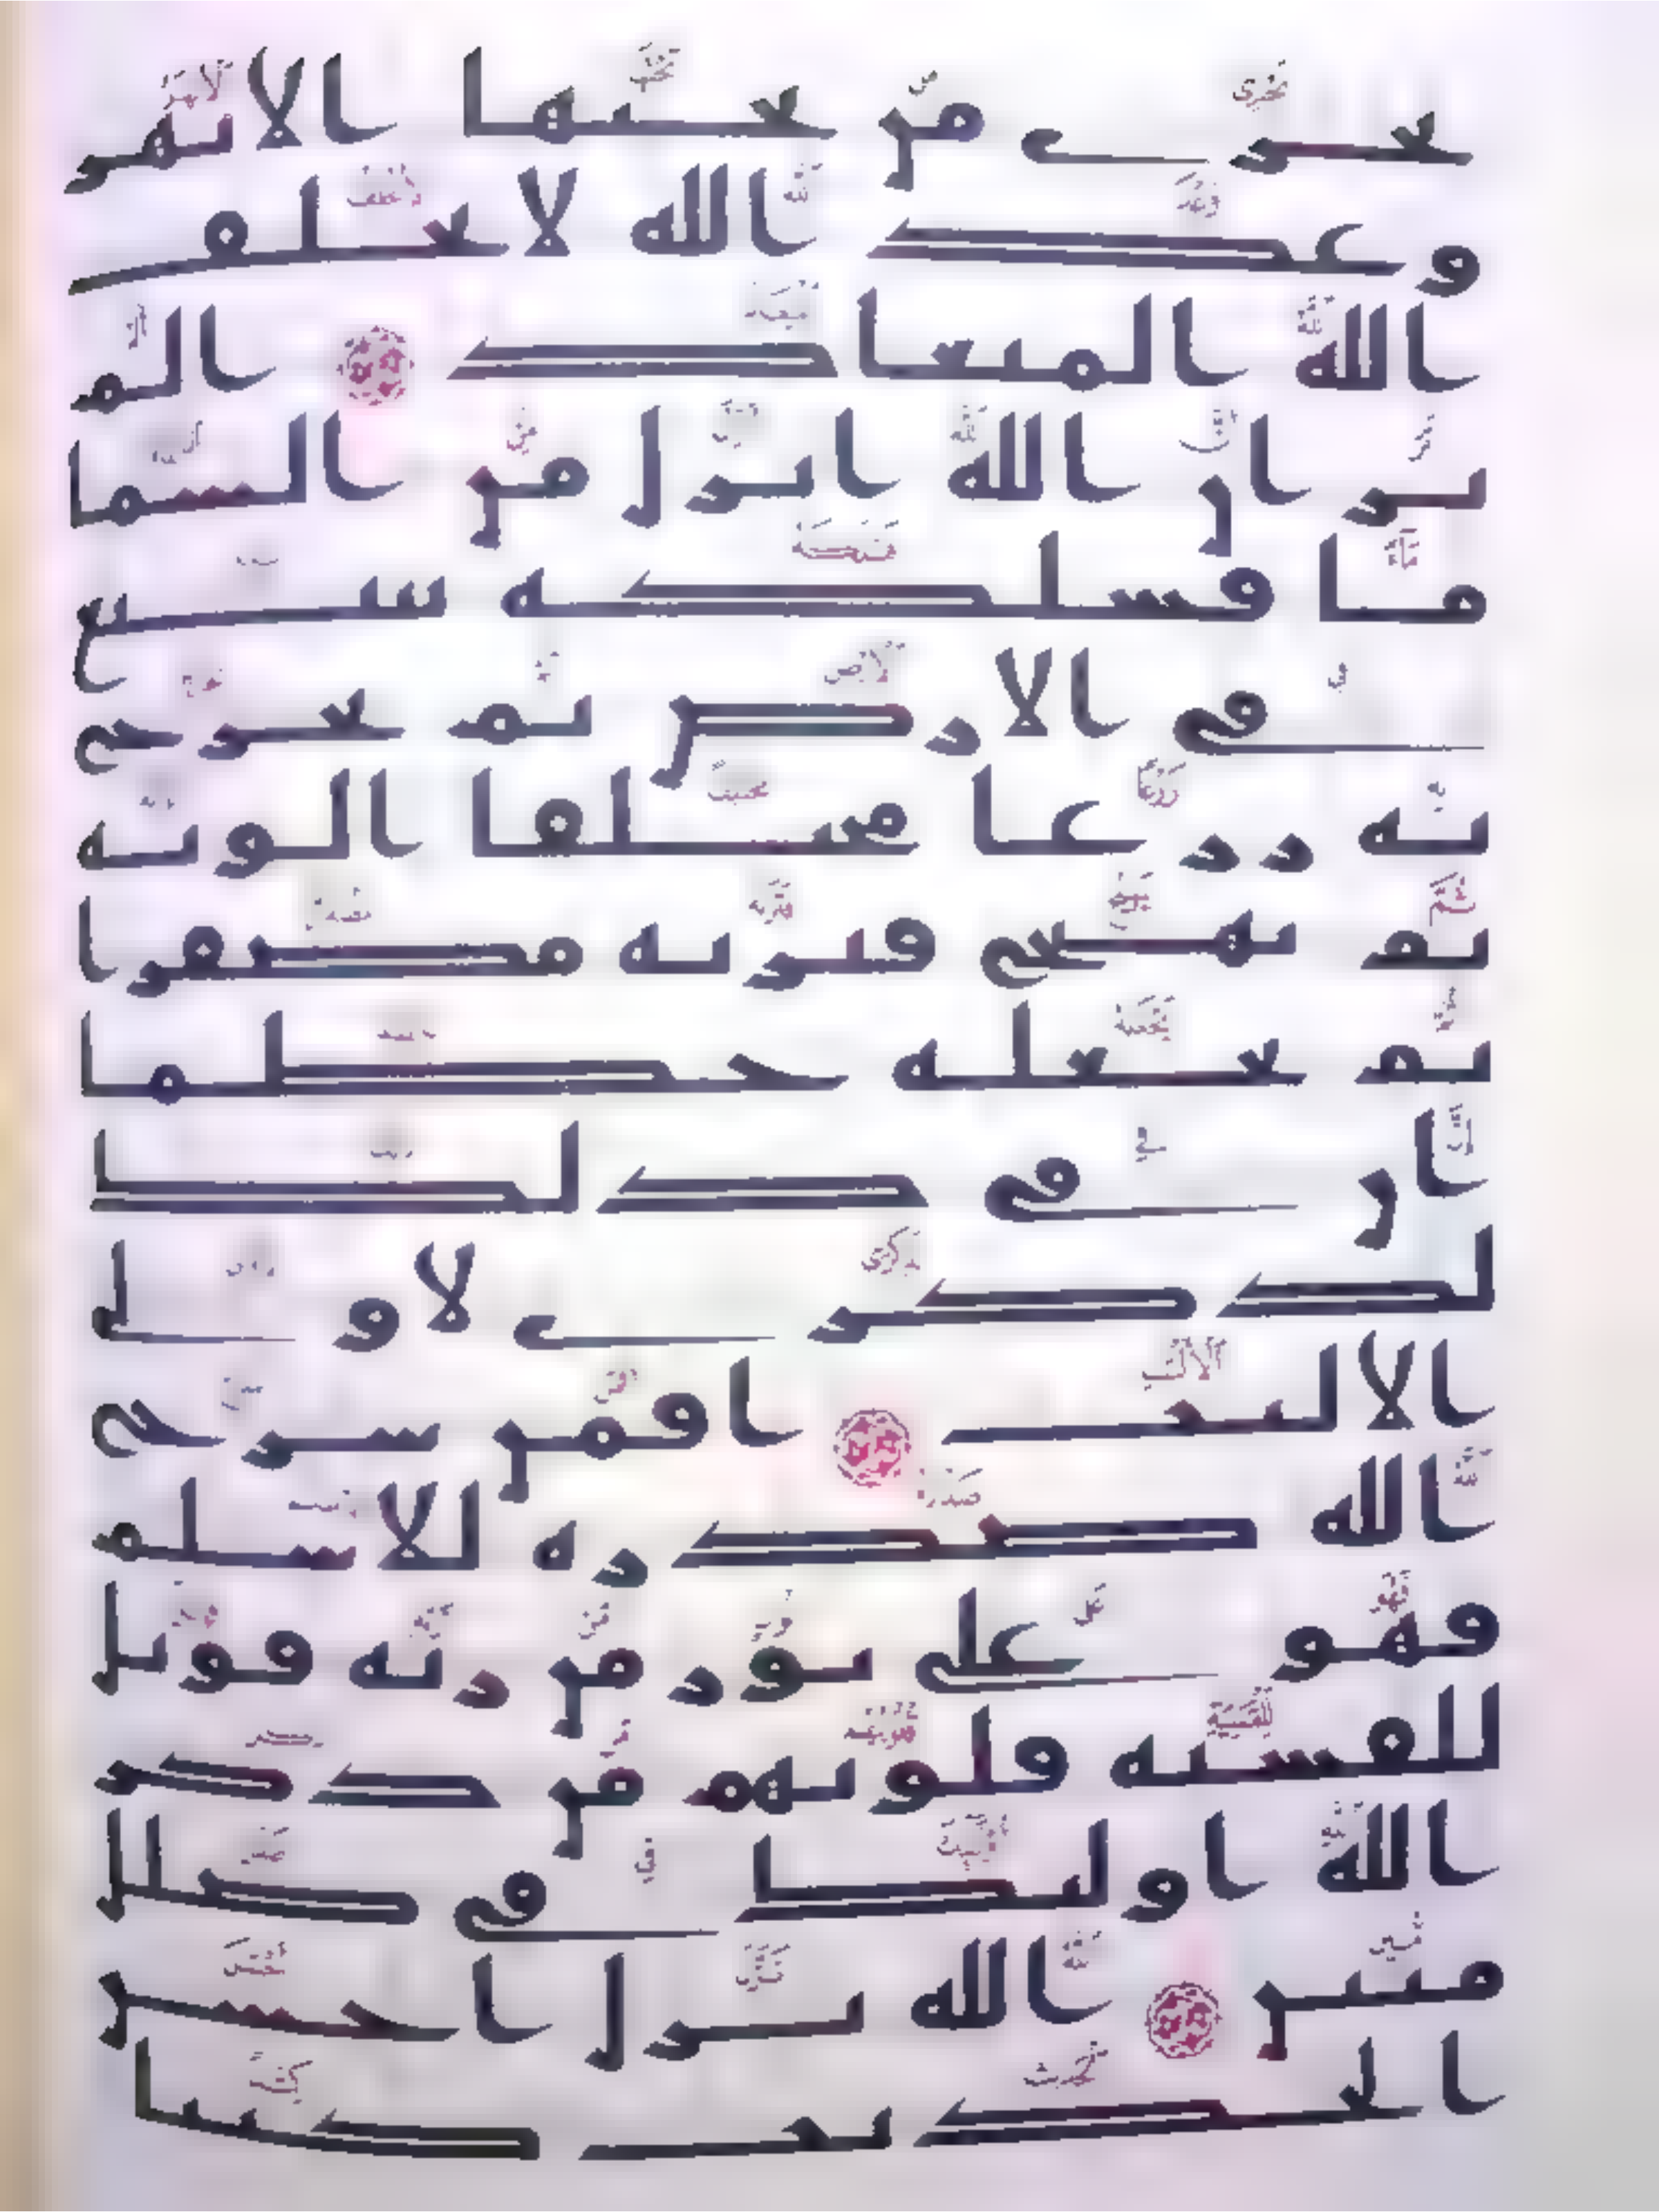 تجرى من تحتها الانهر
وعد الله لا يخلف
الله الميعاد الم
تر ان الله انزل من السما
ما فسلكه ينبيع
فى الارض ثم يخرج
به زرعا مختلفا الونه
ثم يهيج فتريه مصفرا
ثم يجعله حطما
ان فى ذلك
لذكرى لاولى
الالبب افمن شرح
الله صدره للاسلم
فهو على نور من ربه فويل
للقسية قلوبهم من ذكر
الله اوليك فى ضلل
مبين الله نزل احسن
الحديث كتبا